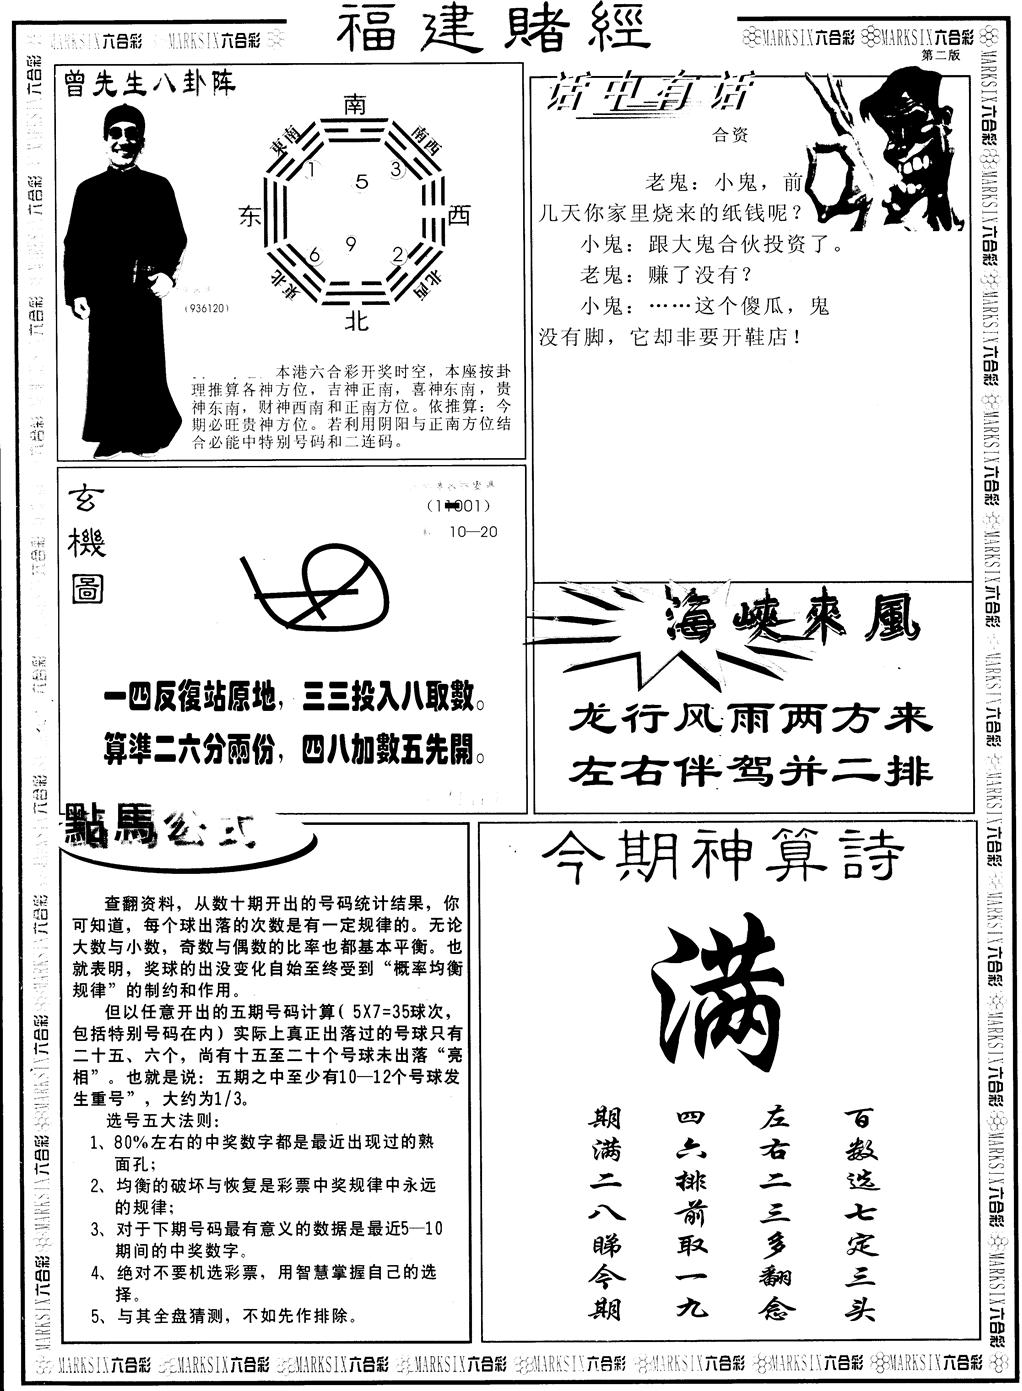 福建賭經
MARKSIX六合彩 MARKSIX六合彩
MARKSIX六合彩 MARKSIX六合彩
第二版
曾先生八卦阵
南
東南
南西
1
5
3
东
西
6
9
2
東北
北西
北
(936120)
本港六合彩开奖时空，本座按卦
理推算各神方位，吉神正南，喜神东南，贵
神东南，财神西南和正南方位。依推算：今
期必旺贵神方位。若利用阴阳与正南方位结
合必能中特别号码和二连码。
话中有话
合资
老鬼：小鬼，前
几天你家里烧来的纸钱呢？
小鬼：跟大鬼合伙投资了。
老鬼：赚了没有？
小鬼：……这个傻瓜，鬼
没有脚，它却非要开鞋店！
玄機圖
10—20
一四反復站原地，三三投入八取數。
算準二六分兩份，四八加數五先開。
海峽來風
龙行风雨两方来
左右伴驾并二排
點馬公式
查翻资料，从数十期开出的号码统计结果，你
可知道，每个球出落的次数是有一定规律的。无论
大数与小数，奇数与偶数的比率也都基本平衡。也
就表明，奖球的出没变化自始至终受到“概率均衡
规律”的制约和作用。
但以任意开出的五期号码计算( 5X7=35球次，
包括特别号码在内) 实际上真正出落过的号球只有
二十五、六个，尚有十五至二十个号球未出落“亮
相”。也就是说：五期之中至少有10—12个号球发
生重号”，大约为1/3。
选号五大法则：
1、80%左右的中奖数字都是最近出现过的熟
面孔；
2、均衡的破坏与恢复是彩票中奖规律中永远
的规律；
3、对于下期号码最有意义的数据是最近5—10
期间的中奖数字。
4、绝对不要机选彩票，用智慧掌握自己的选
择。
5、与其全盘猜测，不如先作排除。
今期神算詩
满
百数选七定三头
左右二三多翻念
四六排前取一九
期满二八睇今期
MARKSIX六合彩 MARKSIX六合彩 MARKSIX六合彩 MARKSIX六合彩 MARKSIX六合彩 MARKSIX六合彩 MARKSIX六合彩 MARKSIX六合彩